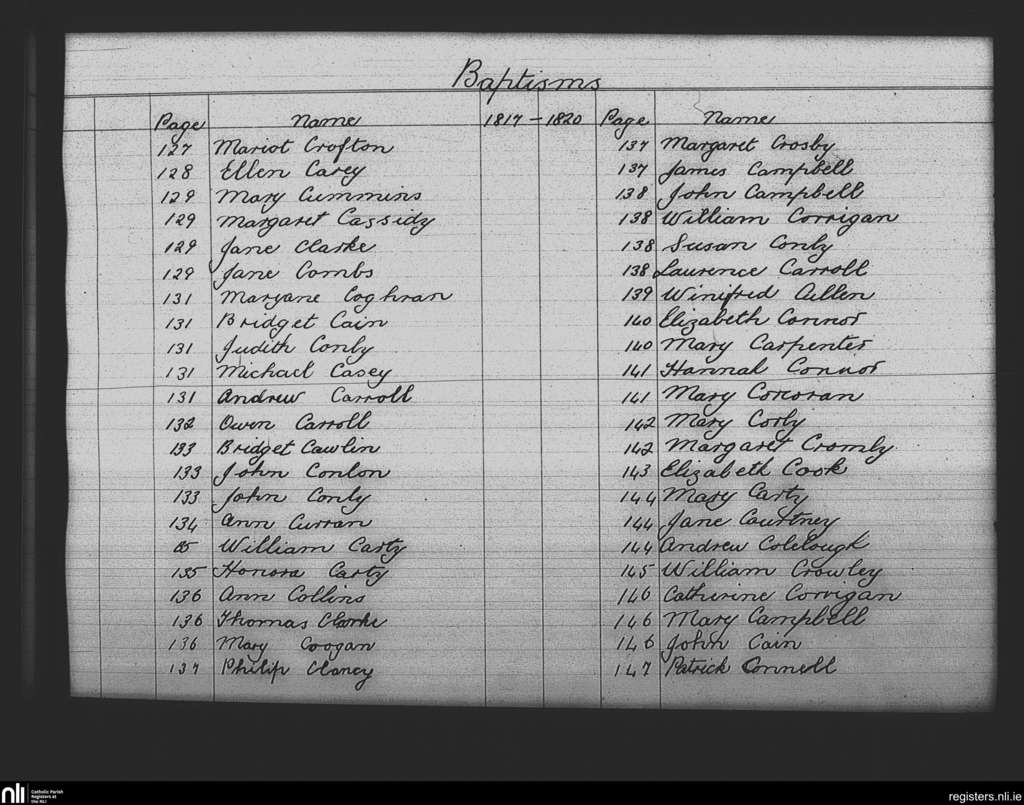 Baptisms
Page Name 1817 - 1820 Page Name
127 Mariot Crofton
128 Ellen Carey
129 Mary Cummins
129 Margaret Cassidy
129 Jane Clarke
129 Jane Combs
131 Maryane Coghran
131 Bridget Cain
131 Judith Conly
131 Michael Casey
131 Andrew Carroll
132 Owen Carroll
133 Bridget Cawlin
133 John Conlon
133 John Conly
134 Ann Curran
William Carty
135 Honora Carty
136 Ann Collins
136 Thomas Clarke
136 Mary Coogan
137 Philip Clancy
137 Margaret Crosby
137 James Campbell
138 John Campbell
138 William Corrigan
138 Susan Conly
138 Laurence Carroll
139 Winifred Cullen
140 Elizabeth Connor
140 Mary Carpenter
141 Hannah Connor
141 Mary Corcoran
142 Mary Corly
142 Margaret Cromly
143 Elizabeth Cook
144 Mary Carty
144 Jane Courtney
144 Andrew Colclough
145 William Crowley
146 Catherine Corrigan
146 Mary Campbell
146 John Cain
147 Patrick Connell
nli Catholic Parish
Registers at
the NLI
registers.nli.ie